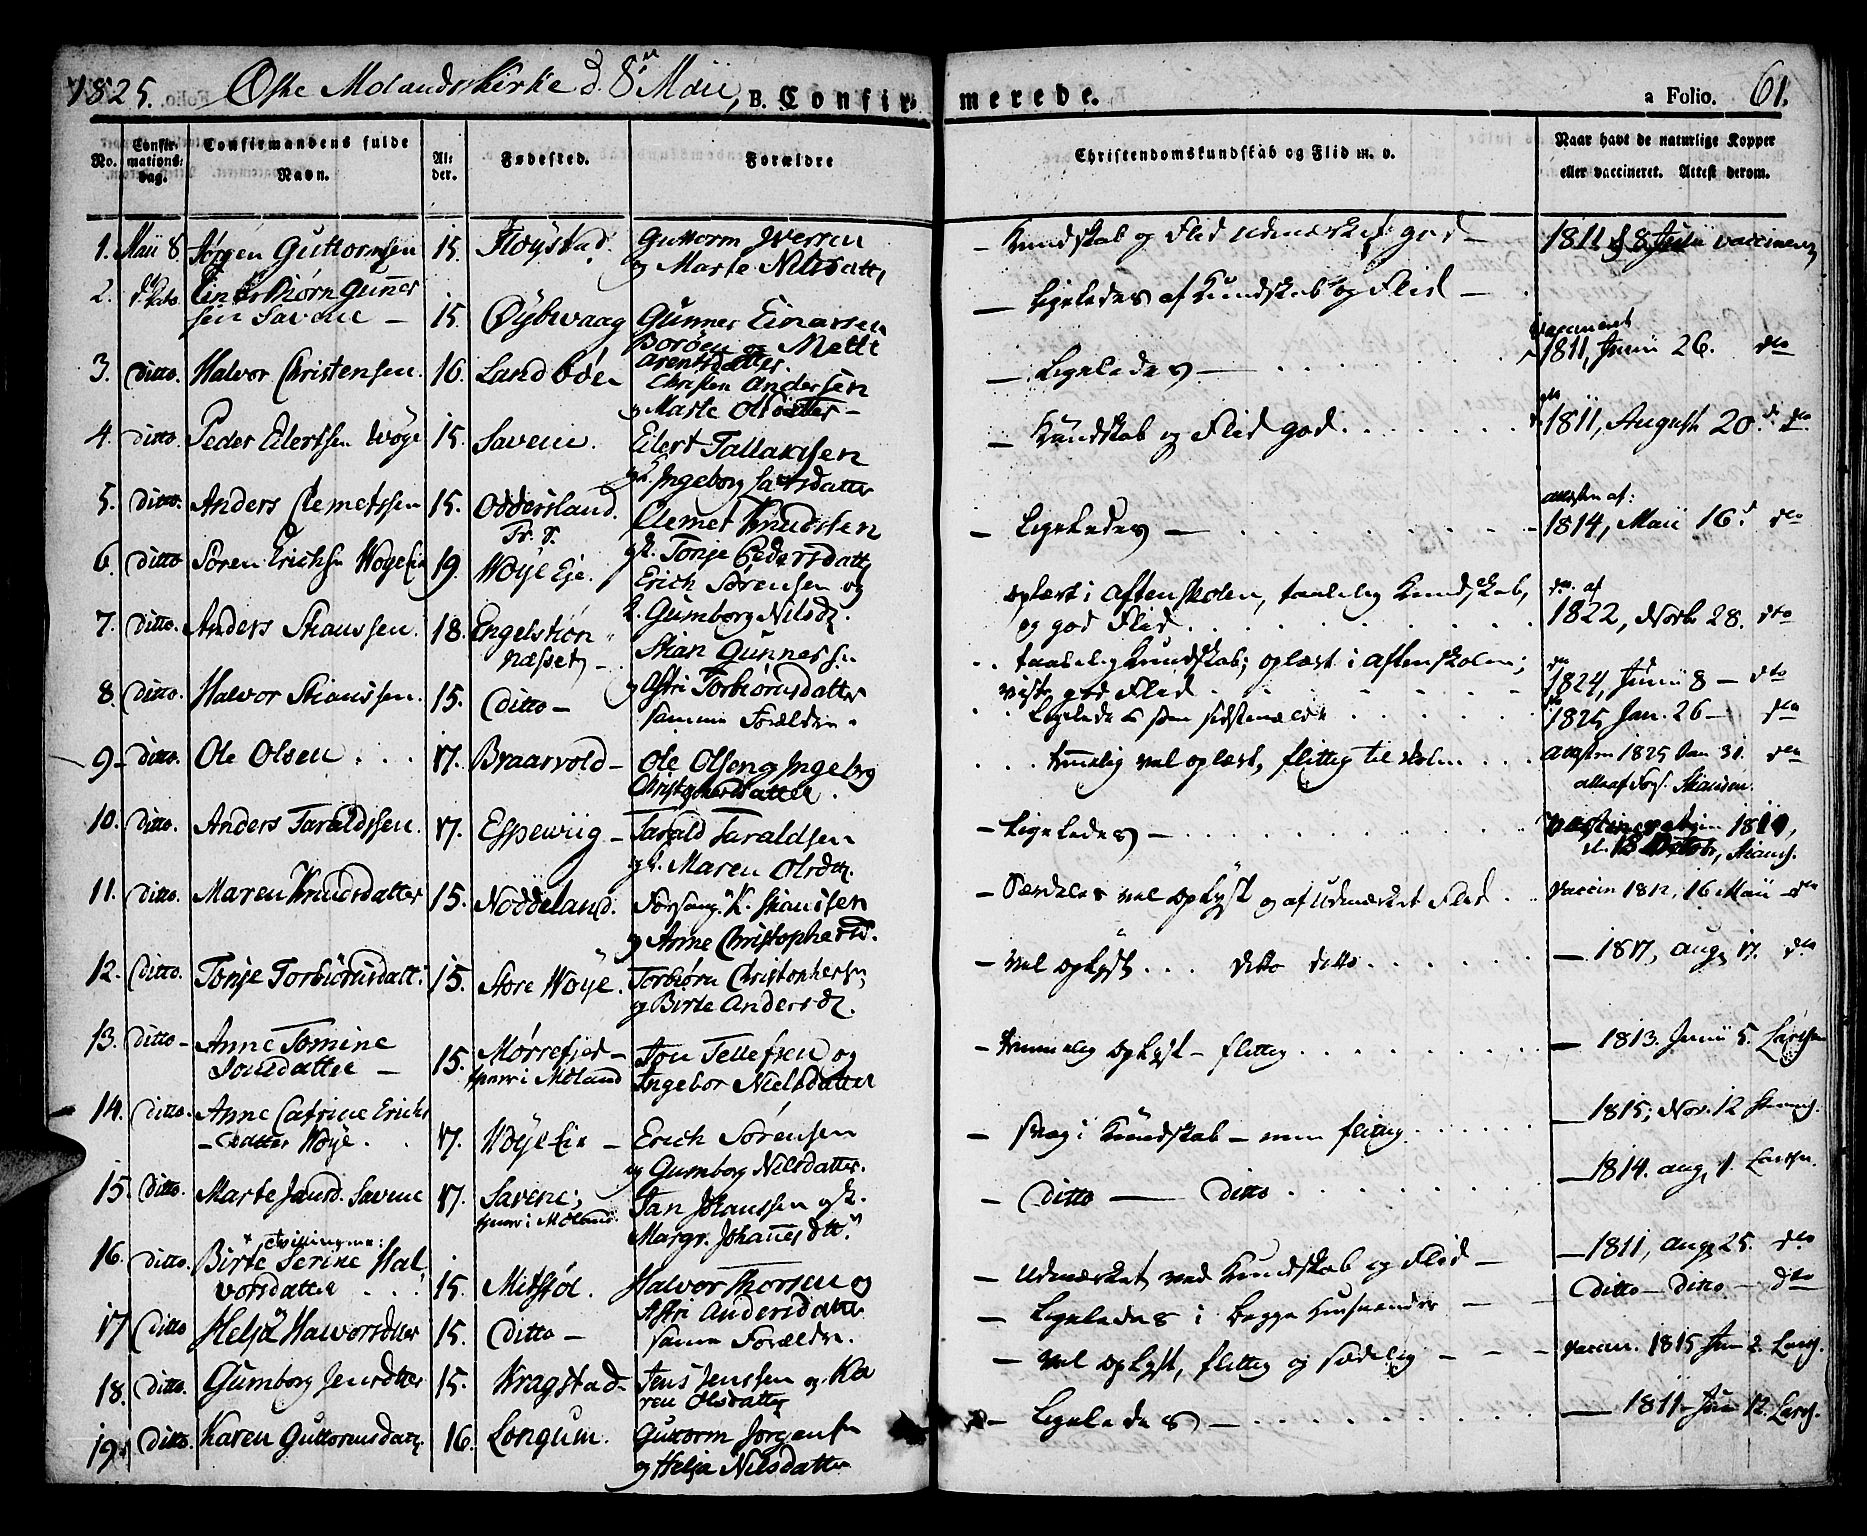 1825. Øste Molands Kirke d. 8de Maii, B. Confirmerede. a Folio. 61.
No. Confirmations-dag. Confirmandens fulde Navn. Alder. Fødested. Forældre Christendomskundskab og Flid m. v. Naar havt de naturlige Kopper eller vaccineret. Attest derom.
1. Maii 8. Jörgen Guttormsen 15. Fløystad. Guttorm Iverren
og Marte Nilsdatter
— Kundskab og Flid udmærket god —
1811 vaccineret
2. Torbiörn Gunner
sen Savene — 15. Öybwaag Gunner Einarsen
Boröen og Mette
Arentsdatter.
— Ligeledes af Kundskab og Flid —
vaccineret
1811, Junii 26. dto
3. Ditto. Halvor Christensen. 16. Sandböe Christen Andersen
og Marte Olsdatter —
— Ligeledes —
4. Ditto. Peder Eilertsen Woye 15. Savene. Eilert Tallaksen
og Ingeborg Larsdatter
— Kundskab og Flid god.
1811, August 20. dto.
5. Ditto. Anders Clemetssen 15. Oddersland. Clemet Knudsen
og k. Tonje Pedersdatter
— Ligeledes —
attesten af:
1814, Maii 16. dto
6. Ditto Sören Erichsen Woye Eie 19. Woye Eje. Erich Sörensen og
k. Gumborg Nilsd.
oplært i Aftenskolen, taalelig Kundskab,
og god Flid.
1822, Novbr 28. dto
7. Ditto. Anders Stianssen. 18. Engelstiön
næsset — Stian Gunnersen
og Astri Torbiörnsdatter
taalelig Kundskab, oplært i Aftenskolen;
viste god Flid
1824, Junii 8 — dto
8. Ditto. Halvor Stianssen. 15. Ditto — samme Forældre.
Ligeledes som sidstmældte
1825 Jan. 26 — dto
9. Ditto. Ole Olsen 17. Braarvold — Ole Olsen og Ingeborg
Christophersdatter.
temmelig vel oplært, flittig til skolen
attesten 1825 Jan 31. dto
10. Ditto. Anders Taraldssen. 17. Espewiig — Tarald Taraldsen
og k. Maren Olsdtr.
— Ligeledes —
11. Ditto. Maren Knudsdatter 15. Noddeland. Forsang. K. Stiansen
og Anne Christophersd.
— Særdeles vel oplyst og af udmærket Flid
vaccin 1812, 16 Maii — dto
12. Ditto. Tonje Torbiörnsdatt: 15. Store Woye. Torbiörn Christophersen
og Birte Andersd.
— vel oplyst ... ditto ditto
— 1817, aug. 17. dto
13. Ditto — Anne Tomine
Jonsdatter — 15. Mörrefjer —
i Moland Jon Tellefsen og
Ingebor Nielsdatter
— temmelig oplyst — flittig
— 1813. Junii 5. Larssen
14. Ditto. Anne Catrine Erichs
— Datter Woye. 17. Woye Eie — Erich Sörensen
og Gumborg Nilsdatter.
— svag i Kundskab — men flittig
— 1815, Nov. 12
15. Ditto. Marte Jansd. Savene 17. Savene;
i Moland. Jan Johanssen og k.
Margr. Johannesdtr.
— Ditto — Ditto
— 1814. aug. 1. Larssen.
16. Ditto. Tvillingerne:
Birte Serine Hal
vorsdatter 15. Mitstöl. Halvor Thorsen og
Astri Andersdatter
— Udmærket ved Kundskab og Flid —
— 1811, aug. 25. dto
17 Ditto Helje Halvorsdtter 15. Ditto — samme Forældre.
— Ligeledes i begge henseender —
Ditto — Ditto — dto
18. Ditto. Gumborg Jensdtter 15. Kragstad — Jens Jenssen og Ka
ren Olsdatter
— vel oplyst, flittig og sædelig — — —
vaccin. 1815 Jun 2. Larss.
19. Ditto. Karen Guttormsdatr. 16. Longum. Guttorm Jörgensen
og Helje Nilsdatter
— Ligeledes —
— 1811 — Jun 12. Larss.